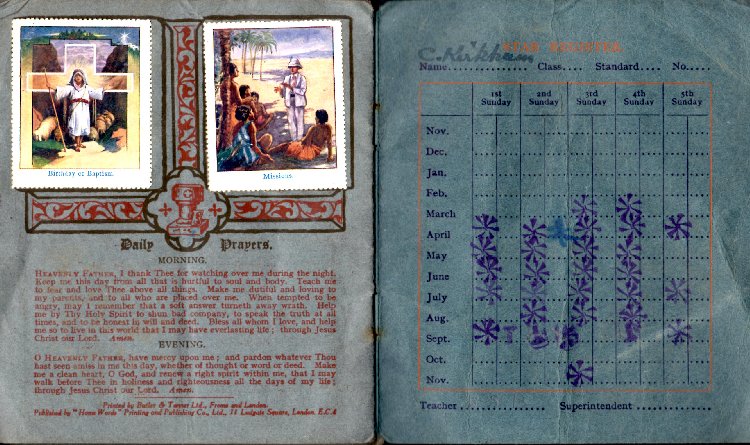 Birthday or Baptism.
Missions.
Daily Prayers.
MORNING.
HEAVENLY FATHER, I thank Thee for watching over me during the night.
Keep me this day from all that is hurtful to soul and body. Teach me
to fear and love Thee above all things. Make me dutiful and loving to
my parents, and to all who are placed over me. When tempted to be
angry, may I remember that a soft answer turneth away wrath. Help
me by Thy Holy Spirit to shun bad company, to speak the truth at all
times, and to be honest in will and deed. Bless all whom I love, and help
me so to live in this world that I may have everlasting life; through Jesus
Christ our Lord. Amen.
EVENING.
O HEAVENLY FATHER, have mercy upon me; and pardon whatever Thou
hast seen amiss in me this day, whether of thought or word or deed. Make
me a clean heart, O God, and renew a right spirit within me, that I may
walk before Thee in holiness and righteousness all the days of my life;
through Jesus Christ our Lord. Amen.
Printed by Butler & Tanner Ltd., Frome and London.
Published by "Home Words" Printing and Publishing Co., Ltd., 11 Ludgate Square, London, E.C.4
REGISTER
Name............... Class.... Standard.... No.....
1st Sunday 2nd Sunday 3rd Sunday 4th Sunday 5th Sunday
Nov.
Dec.
Jan.
Feb.
March
April
May
June
July
Aug.
Sept.
Oct.
Nov.
Teacher ................ Superintendent ................